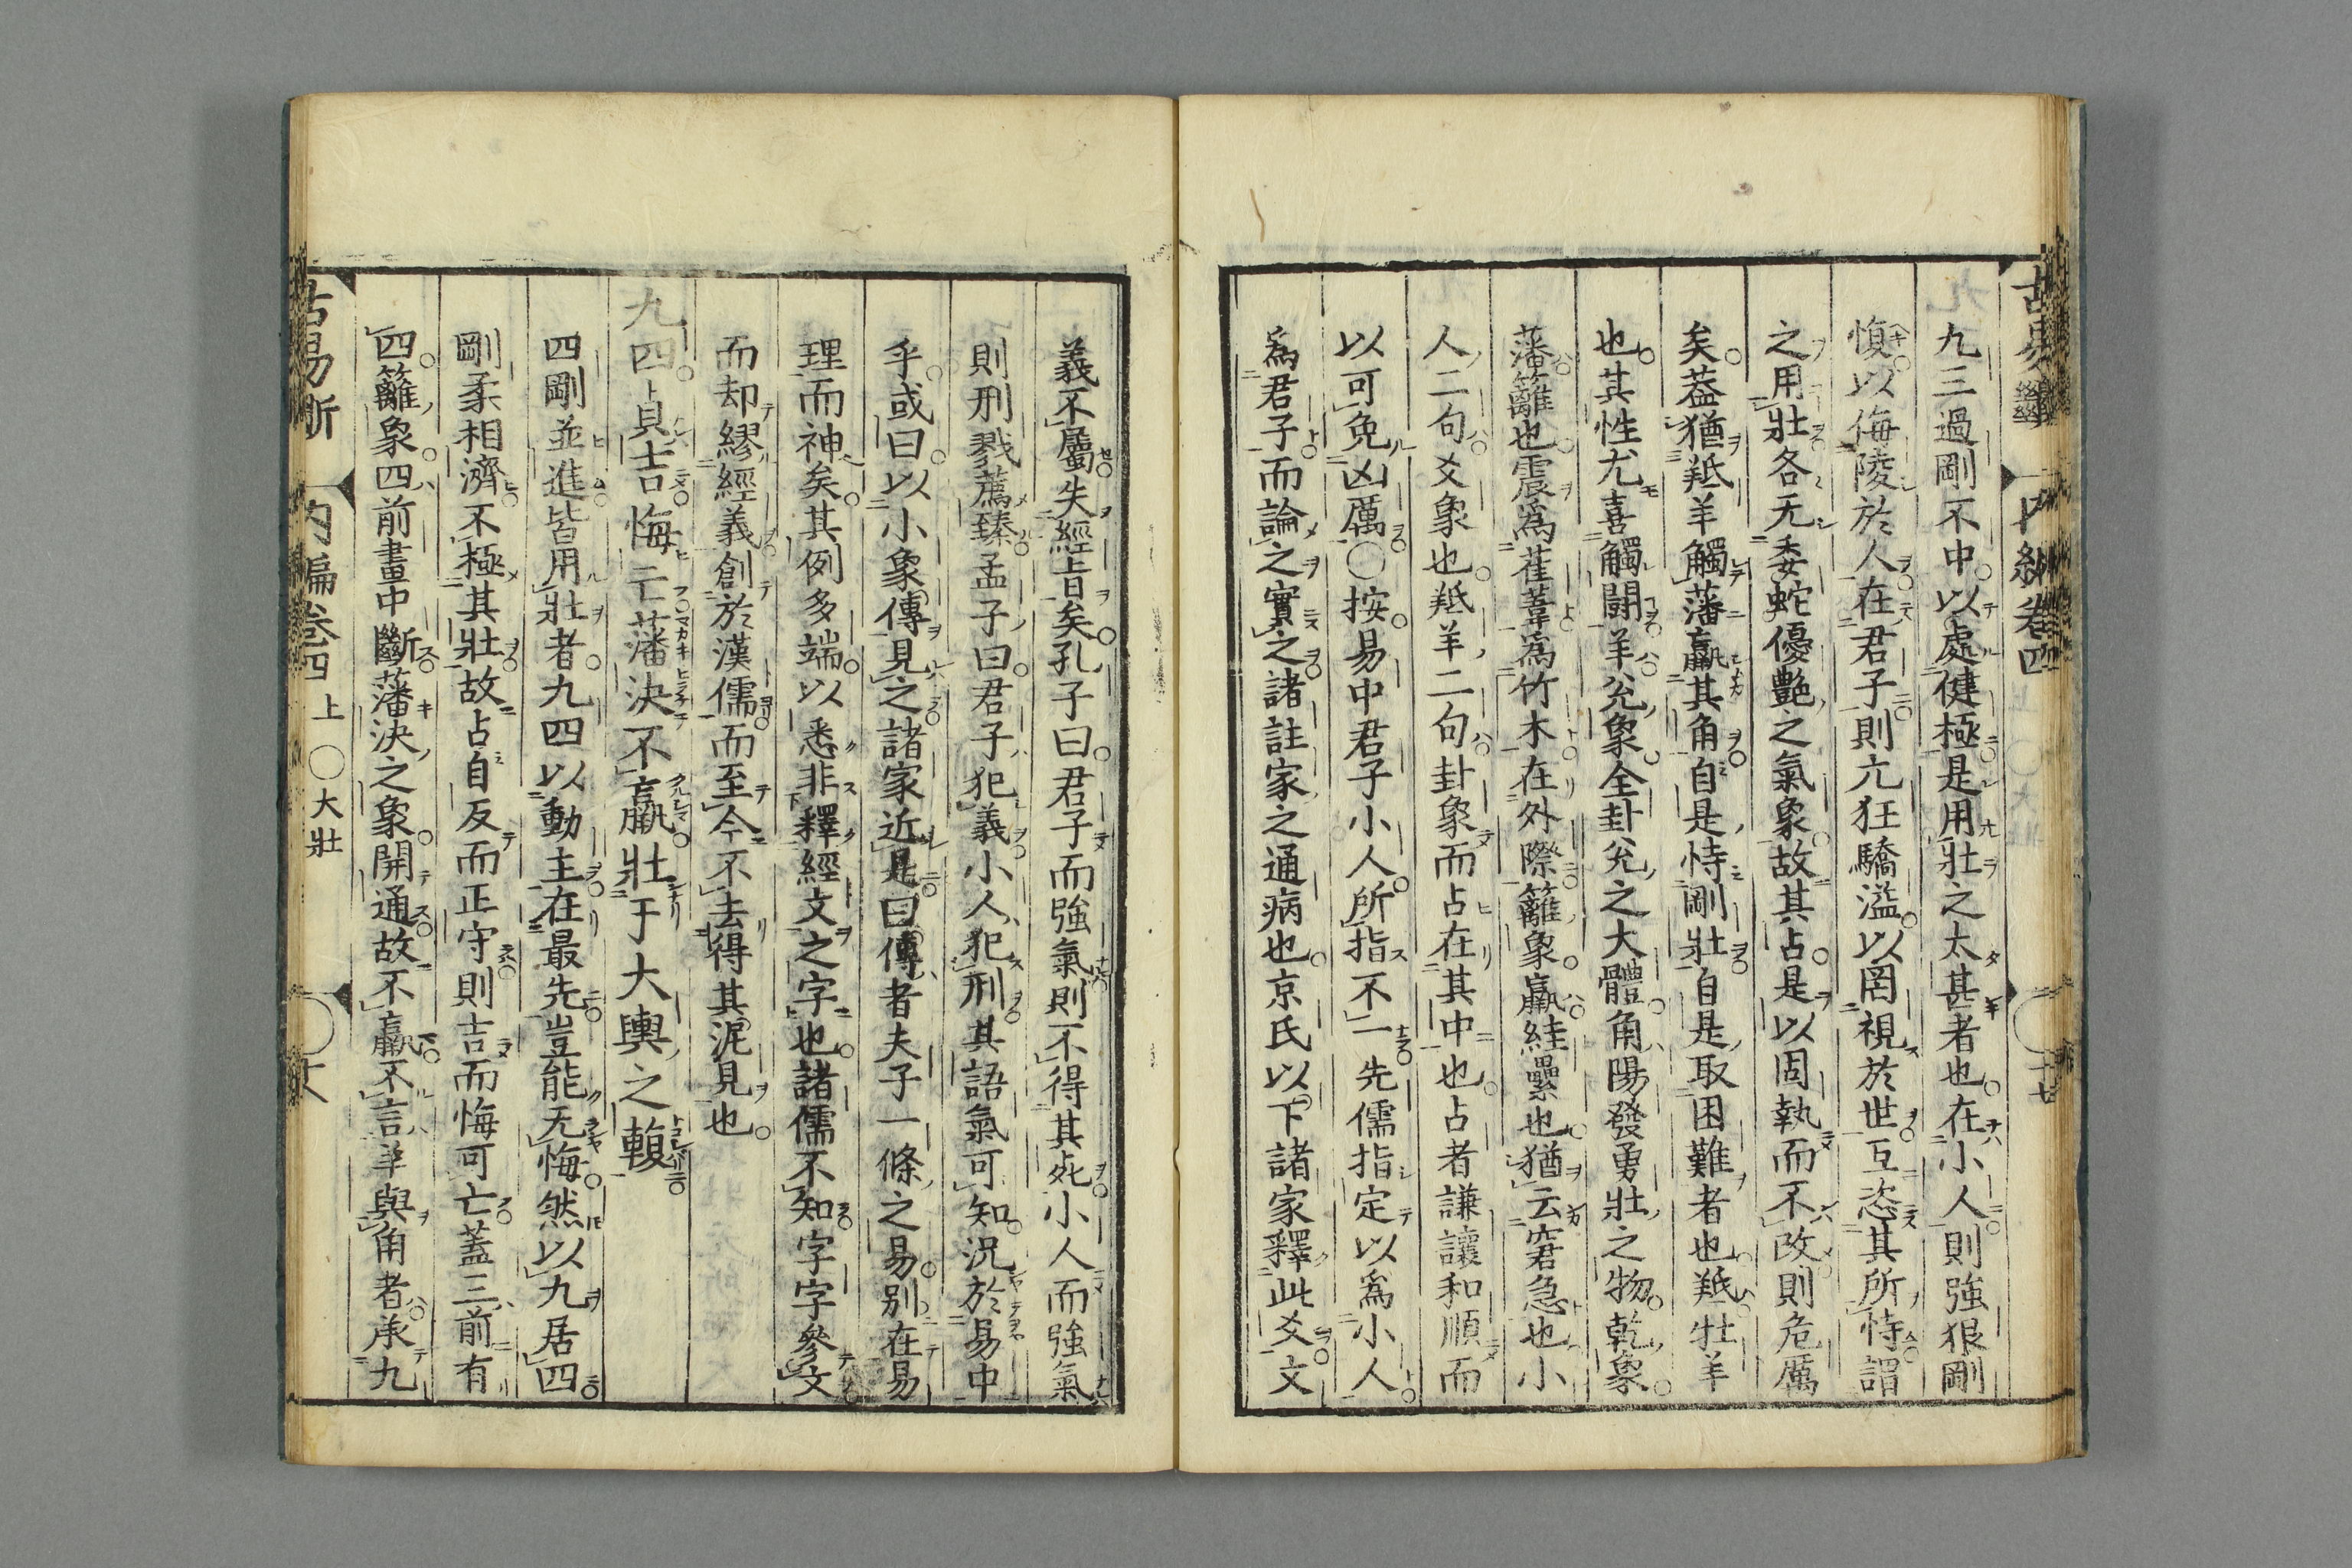 九三過剛不中以處健極是用壯之太甚者也在小人則強狠剛
愎以侮陵於人在君子則亢狂驕溢以罔視於世互恣其所恃謂
之用壯各无委蛇優艶之氣象故其占是以固執而不改則危厲
矣葢猶羝羊觸藩羸其角自是恃剛壯自是取困難者也羝牡羊
也其性尤喜觸鬪羊兊象全卦兊之大體角陽發勇壯之物乾象
藩籬也震爲萑葦爲竹木在外際籬象羸絓纍也猶云窘急也小
人二句爻象也羝羊二句卦象而占在其中也占者謙讓和順而
以可免凶厲〇按易中君子小人所指不一先儒指定以爲小人
爲君子而論之實之諸註家之通病也京氏以下諸家釋此爻文
義不屬失經旨矣孔子曰君子而強氣則不得其死小人而強氣
則刑戮薦臻孟子曰君子犯義小人犯刑其語氣可知況於易中
乎或曰以小象傳見之諸家近是曰傳者夫子一條之易別在易
理而神矣其例多端以悉非釋經文之字也諸儒不知字字參文
而却繆經義創於漢儒而至今不去得其泥見也
九四貞吉悔亡藩決不羸壯于大輿之輹
四剛並進皆用壯者九四以動主在最先豈能无悔然以九居四
剛柔相濟不極其壯故占自反而正守則吉而悔可亡蓋三前有
四籬象四前畫中斷藩決之象開通故不羸不言羊與角者承九
古易斷　内編卷四上　〇大壯